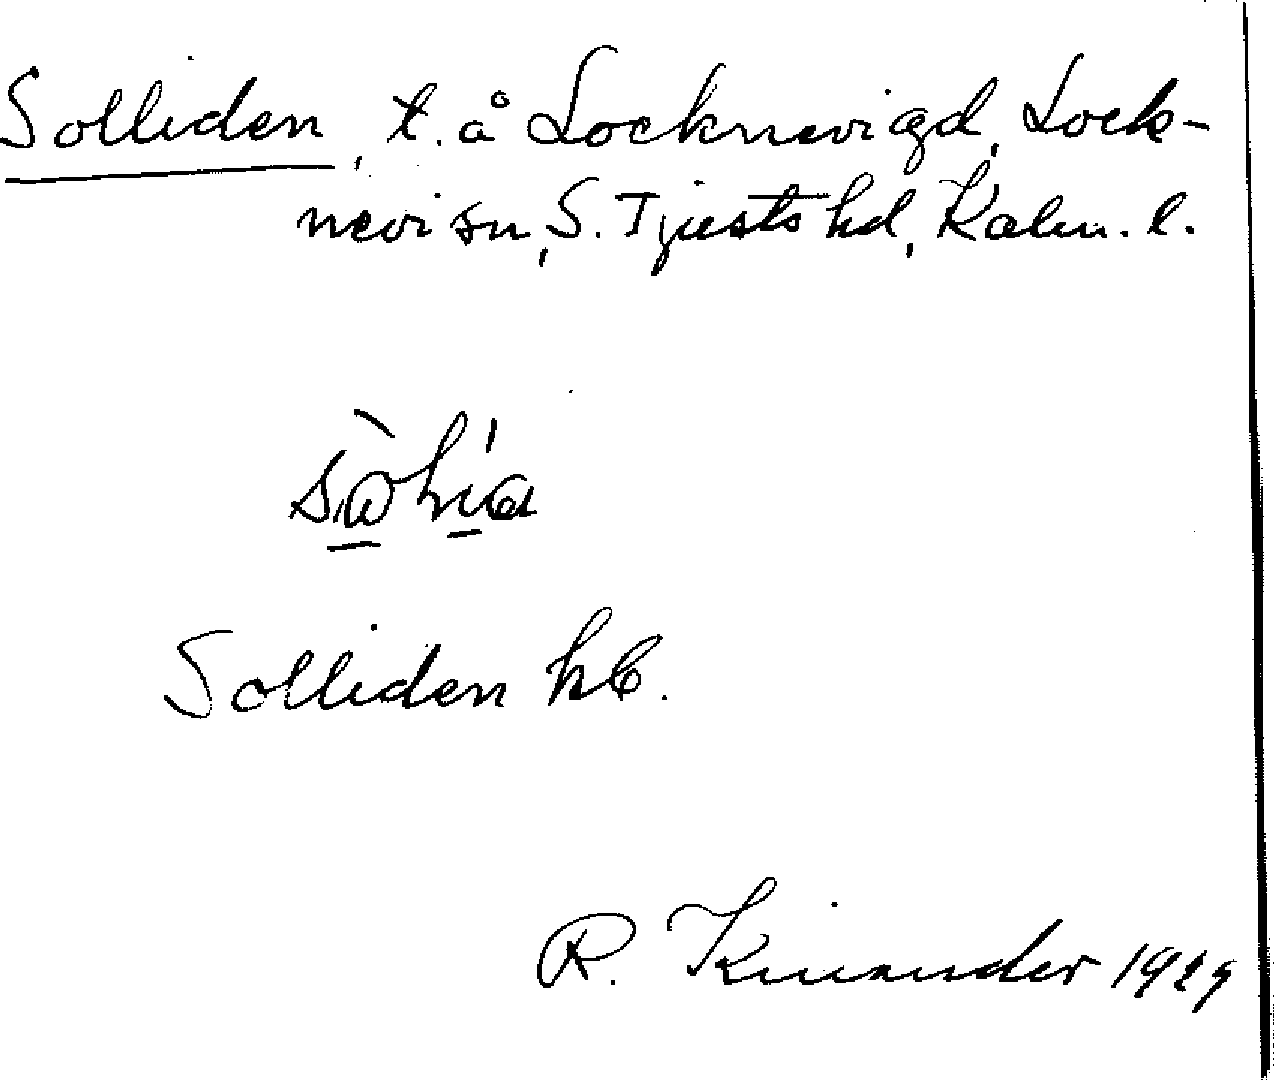 Solliden, t. å Locknevi ägd, Lock-
nevi sn, S. Tjusts hd, Kalm. l.
Solliden kb.
R. Kinander 1929